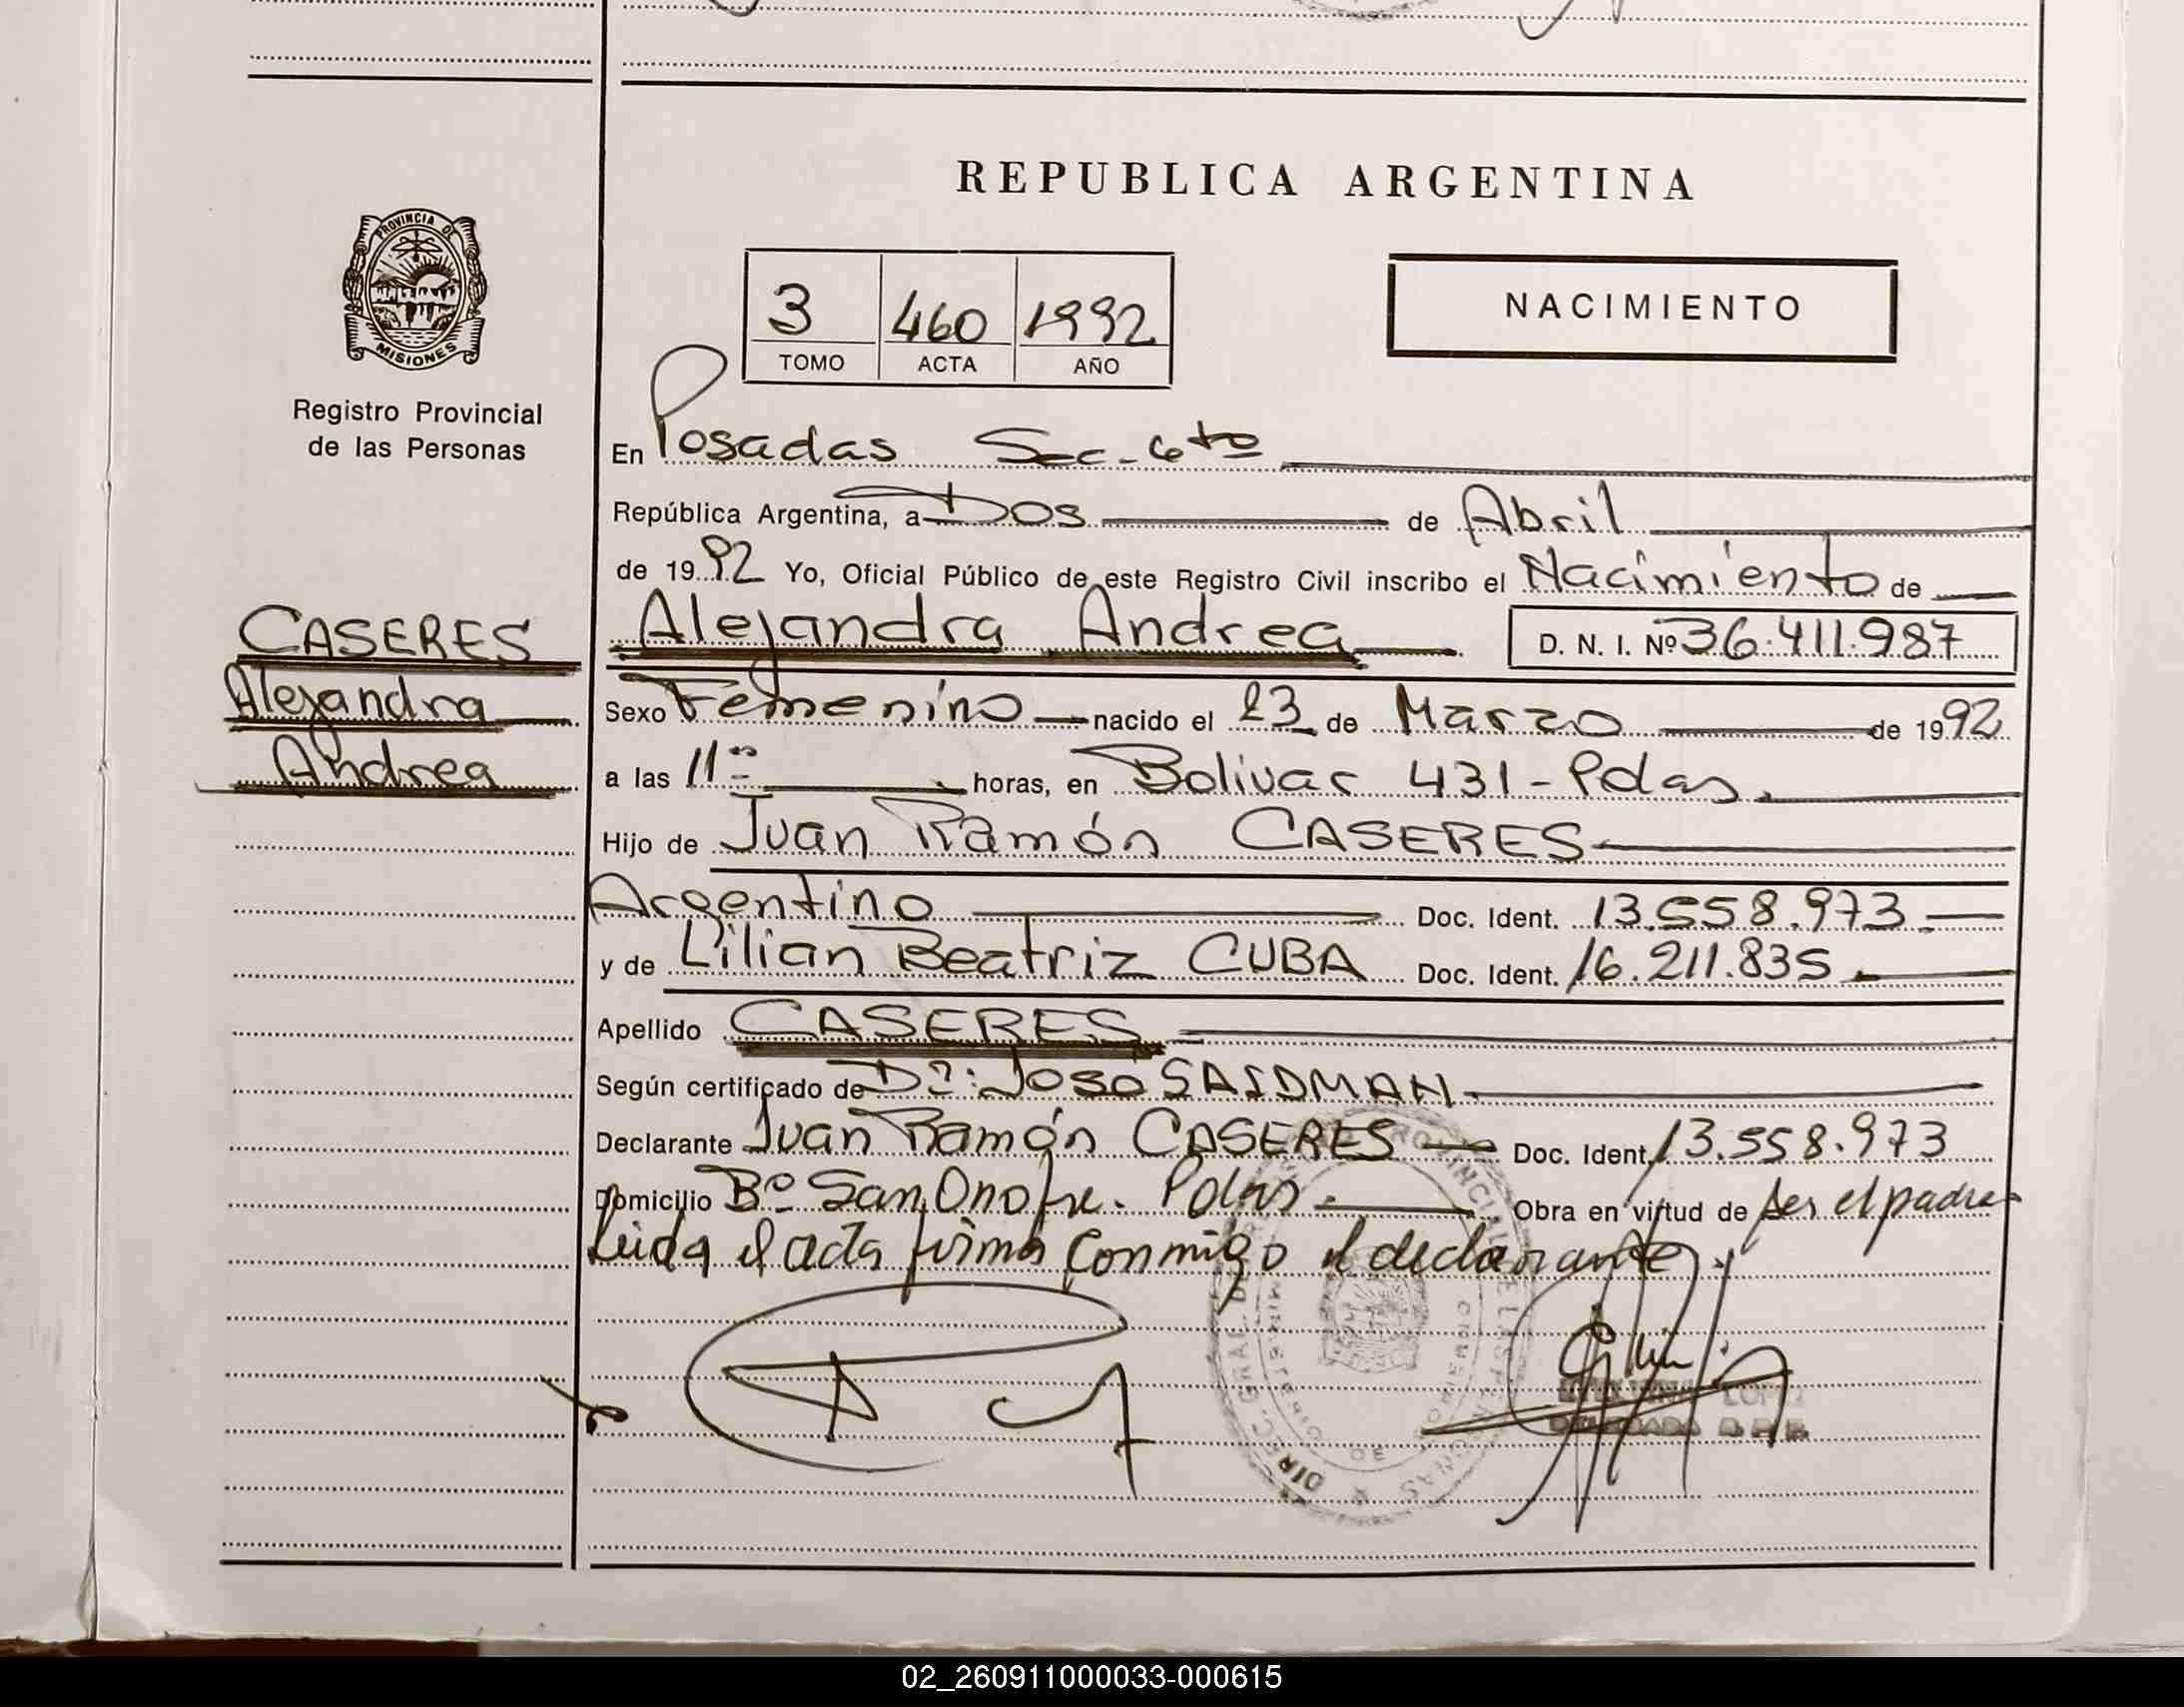 REPUBLICA ARGENTINA
PROVINCIA DE
MISIONES
Registro Provincial
de las Personas
3 460 1992
TOMO ACTA AÑO
NACIMIENTO
En Posadas Sec. 6to
República Argentina, a Dos de Abril
de 1992 Yo, Oficial Público de este Registro Civil inscribo el Nacimiento de
CASERES
Alejandra
Andrea
Alejandra Andrea D. N. I. Nº 36.411.987
Sexo Femenino nacido el 23 de Marzo de 1992
a las 11 horas, en Bolivar 431 - Pdas.
Hijo de Juan Ramón CASERES
Argentino Doc. Ident. 13.558.973.
y de Lilian Beatriz CUBA Doc. Ident. 16.211.835.
Apellido CASERES
Según certificado de José SAIDMAN
Declarante Juan Ramón CASERES Doc. Ident. 13.558.973
Domicilio Bº San Onofre. Pdas. Obra en virtud de ser el padre
Leida el acta firma conmigo el declarante.
02_260911000033-000615